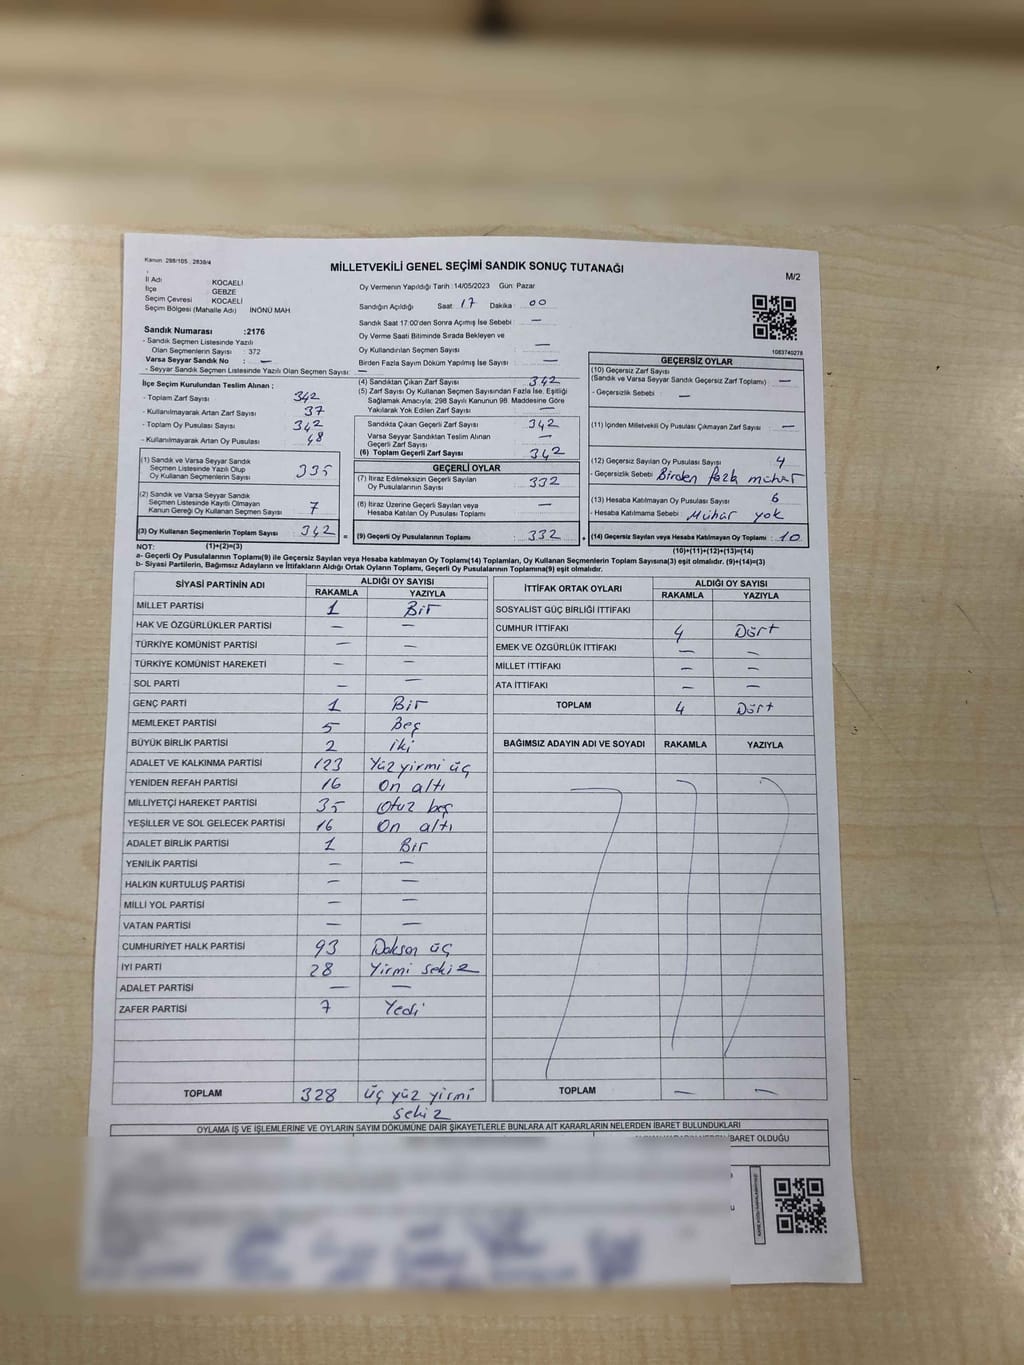 Kanun 298/105, 2839/4
MİLLETVEKİLİ GENEL SEÇİMİ SANDIK SONUÇ TUTANAĞI
M/2
İl Adı KOCAELİ
İlçe GEBZE
Seçim Çevresi KOCAELİ
Seçim Bölgesi (Mahalle Adı) İNÖNÜ MAH
Oy Vermenin Yapıldığı Tarih :14/05/2023 Gün: Pazar
Sandığın Açıldığı Saat: 17 Dakika: 00
Sandık Saat 17:00'den Sonra Açımış İse Sebebi : —
Oy Verme Saati Bitiminde Sırada Bekleyen ve
Oy Kullandırılan Seçmen Sayısı : —
Birden Fazla Sayım Döküm Yapılmış İse Sayısı : —
Sandık Numarası :2176
- Sandık Seçmen Listesinde Yazılı
Olan Seçmenlerin Sayısı : 372
Varsa Seyyar Sandık No : —
- Seyyar Sandık Seçmen Listesinde Yazılı Olan Seçmen Sayısı: —
1083740278
İlçe Seçim Kurulundan Teslim Alınan ;
- Toplam Zarf Sayısı : 342
- Kullanılmayarak Artan Zarf Sayısı : 37
- Toplam Oy Pusulası Sayısı : 342
- Kullanılmayarak Artan Oy Pusulası : 48
(1) Sandık ve Varsa Seyyar Sandık
Seçmen Listesinde Yazılı Olup
Oy Kullanan Seçmenlerin Sayısı : 335
(2) Sandık ve Varsa Seyyar Sandık
Seçmen Listesinde Kayıtlı Olmayan
Kanun Gereği Oy Kullanan Seçmen Sayısı : 7
(3) Oy Kullanan Seçmenlerin Toplam Sayısı : 342
(1)+(2)=(3)
(4) Sandıktan Çıkan Zarf Sayısı : 342
(5) Zarf Sayısı Oy Kullanan Seçmen Sayısından Fazla İse, Eşitliği
Sağlamak Amacıyla; 298 Sayılı Kanunun 98. Maddesine Göre
Yakılarak Yok Edilen Zarf Sayısı : —
Sandıkta Çıkan Geçerli Zarf Sayısı : 342
Varsa Seyyar Sandıktan Teslim Alınan
Geçerli Zarf Sayısı : —
(6) Toplam Geçerli Zarf Sayısı : 342
GEÇERLİ OYLAR
(7) İtiraz Edilmeksizin Geçerli Sayılan
Oy Pusulalarının Sayısı : 332
(8) İtiraz Üzerine Geçerli Sayılan veya
Hesaba Katılan Oy Pusulası Toplamı : —
= (9) Geçerli Oy Pusulalarının Toplamı : 332
GEÇERSİZ OYLAR
(10) Geçersiz Zarf Sayısı
(Sandık ve Varsa Seyyar Sandık Geçersiz Zarf Toplamı) : —
- Geçersizlik Sebebi : —
(11) İçinden Milletvekili Oy Pusulası Çıkmayan Zarf Sayısı : —
(12) Geçersiz Sayılan Oy Pusulası Sayısı : 4
- Geçersizlik Sebebi : Birden fazla mühür
(13) Hesaba Katılmayan Oy Pusulası Sayısı : 6
- Hesaba Katılmama Sebebi : Mühür yok
+ (14) Geçersiz Sayılan veya Hesaba Katılmayan Oy Toplamı : 10
(10)+(11)+(12)+(13)=(14)
NOT:
a- Geçerli Oy Pusulalarının Toplamı(9) ile Geçersiz Sayılan veya Hesaba katılmayan Oy Toplam(14) Toplamları, Oy Kullanan Seçmenlerin Toplam Sayısına(3) eşit olmalıdır. (9)+(14)=(3)
b- Siyasi Partilerin, Bağımsız Adayların ve İttifakların Aldığı Ortak Oyların Toplamı, Geçerli Oy Pusulalarının Toplamına(9) eşit olmalıdır.
SİYASİ PARTİNİN ADI ALDIĞI OY SAYISI
RAKAMLA YAZIYLA
MİLLET PARTİSİ 1 Bir
HAK VE ÖZGÜRLÜKLER PARTİSİ — —
TÜRKİYE KOMÜNİST PARTİSİ — —
TÜRKİYE KOMÜNİST HAREKETİ — —
SOL PARTİ — —
GENÇ PARTİ 1 Bir
MEMLEKET PARTİSİ 5 Beş
BÜYÜK BİRLİK PARTİSİ 2 iki
ADALET VE KALKINMA PARTİSİ 123 Yüz yirmi üç
YENİDEN REFAH PARTİSİ 16 On altı
MİLLİYETÇİ HAREKET PARTİSİ 35 Otuz beş
YEŞİLLER VE SOL GELECEK PARTİSİ 16 On altı
ADALET BİRLİK PARTİSİ 1 Bir
YENİLİK PARTİSİ — —
HALKIN KURTULUŞ PARTİSİ — —
MİLLİ YOL PARTİSİ — —
VATAN PARTİSİ — —
CUMHURİYET HALK PARTİSİ 93 Doksan üç
İYİ PARTİ 28 Yirmi sekiz
ADALET PARTİSİ — —
ZAFER PARTİSİ 7 Yedi
TOPLAM 328 üç yüz yirmi
sekiz
İTTİFAK ORTAK OYLARI ALDIĞI OY SAYISI
RAKAMLA YAZIYLA
SOSYALİST GÜÇ BİRLİĞİ İTTİFAKI
CUMHUR İTTİFAKI 4 Dört
EMEK VE ÖZGÜRLÜK İTTİFAKI — —
MİLLET İTTİFAKI — —
ATA İTTİFAKI — —
TOPLAM 4 Dört
BAĞIMSIZ ADAYIN ADI VE SOYADI RAKAMLA YAZIYLA
TOPLAM — —
OYLAMA İŞ VE İŞLEMLERİNE VE OYLARIN SAYIM DÖKÜMÜNE DAİR ŞİKAYETLERLE BUNLARA AİT KARARLARIN NELERDEN İBARET BULUNDUKLARI
İBARET OLDUĞU